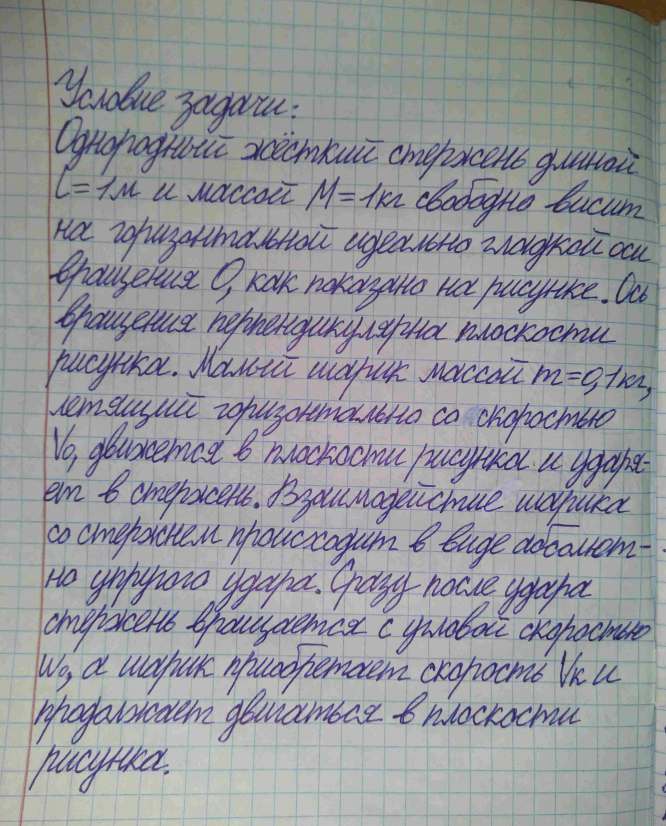 Условие задачи:
Однородный жёсткий стержень длиной
l=1м и массой M=1кг свободно висит
на горизонтальной идеально гладкой оси
вращения O, как показано на рисунке. Ось
вращения перпендикулярна плоскости
рисунка. Малый шарик массой m=0,1кг,
летящий горизонтально со скоростью
V₀, движется в плоскости рисунка и ударя-
ет в стержень. Взаимодействие шарика
со стержнем происходит в виде абсолют-
но упругого удара. Сразу после удара
стержень вращается с угловой скоростью
ω₀, а шарик приобретает скорость Vк и
продолжает двигаться в плоскости
рисунка.